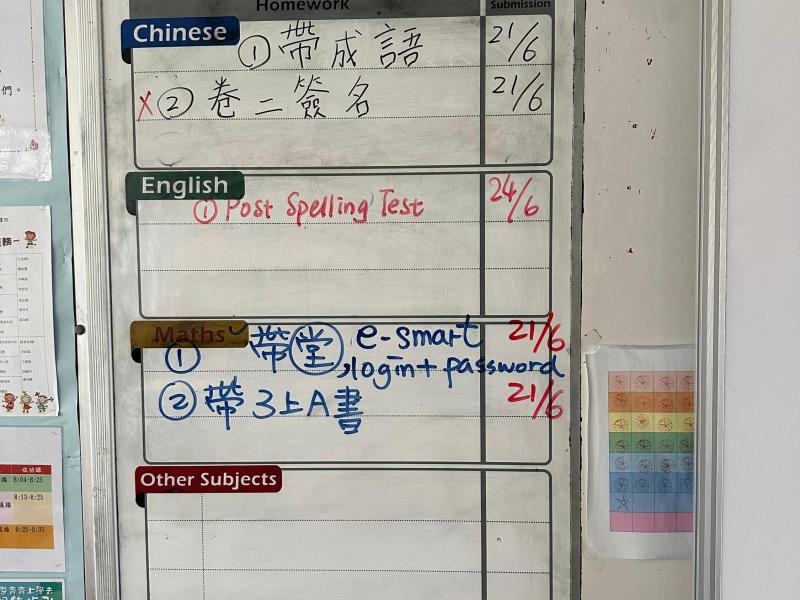 Homework
Submission
Chinese
① 帶成語 21/6
X ② 卷二簽名 21/6
English
① Post Spelling Test 24/6
Maths
① 帶堂, e-smart 21/6
login + password
② 帶 3上A書 21/6
Other Subjects
們。
8:04-8:25
8:13-8:25
9:20-9:35